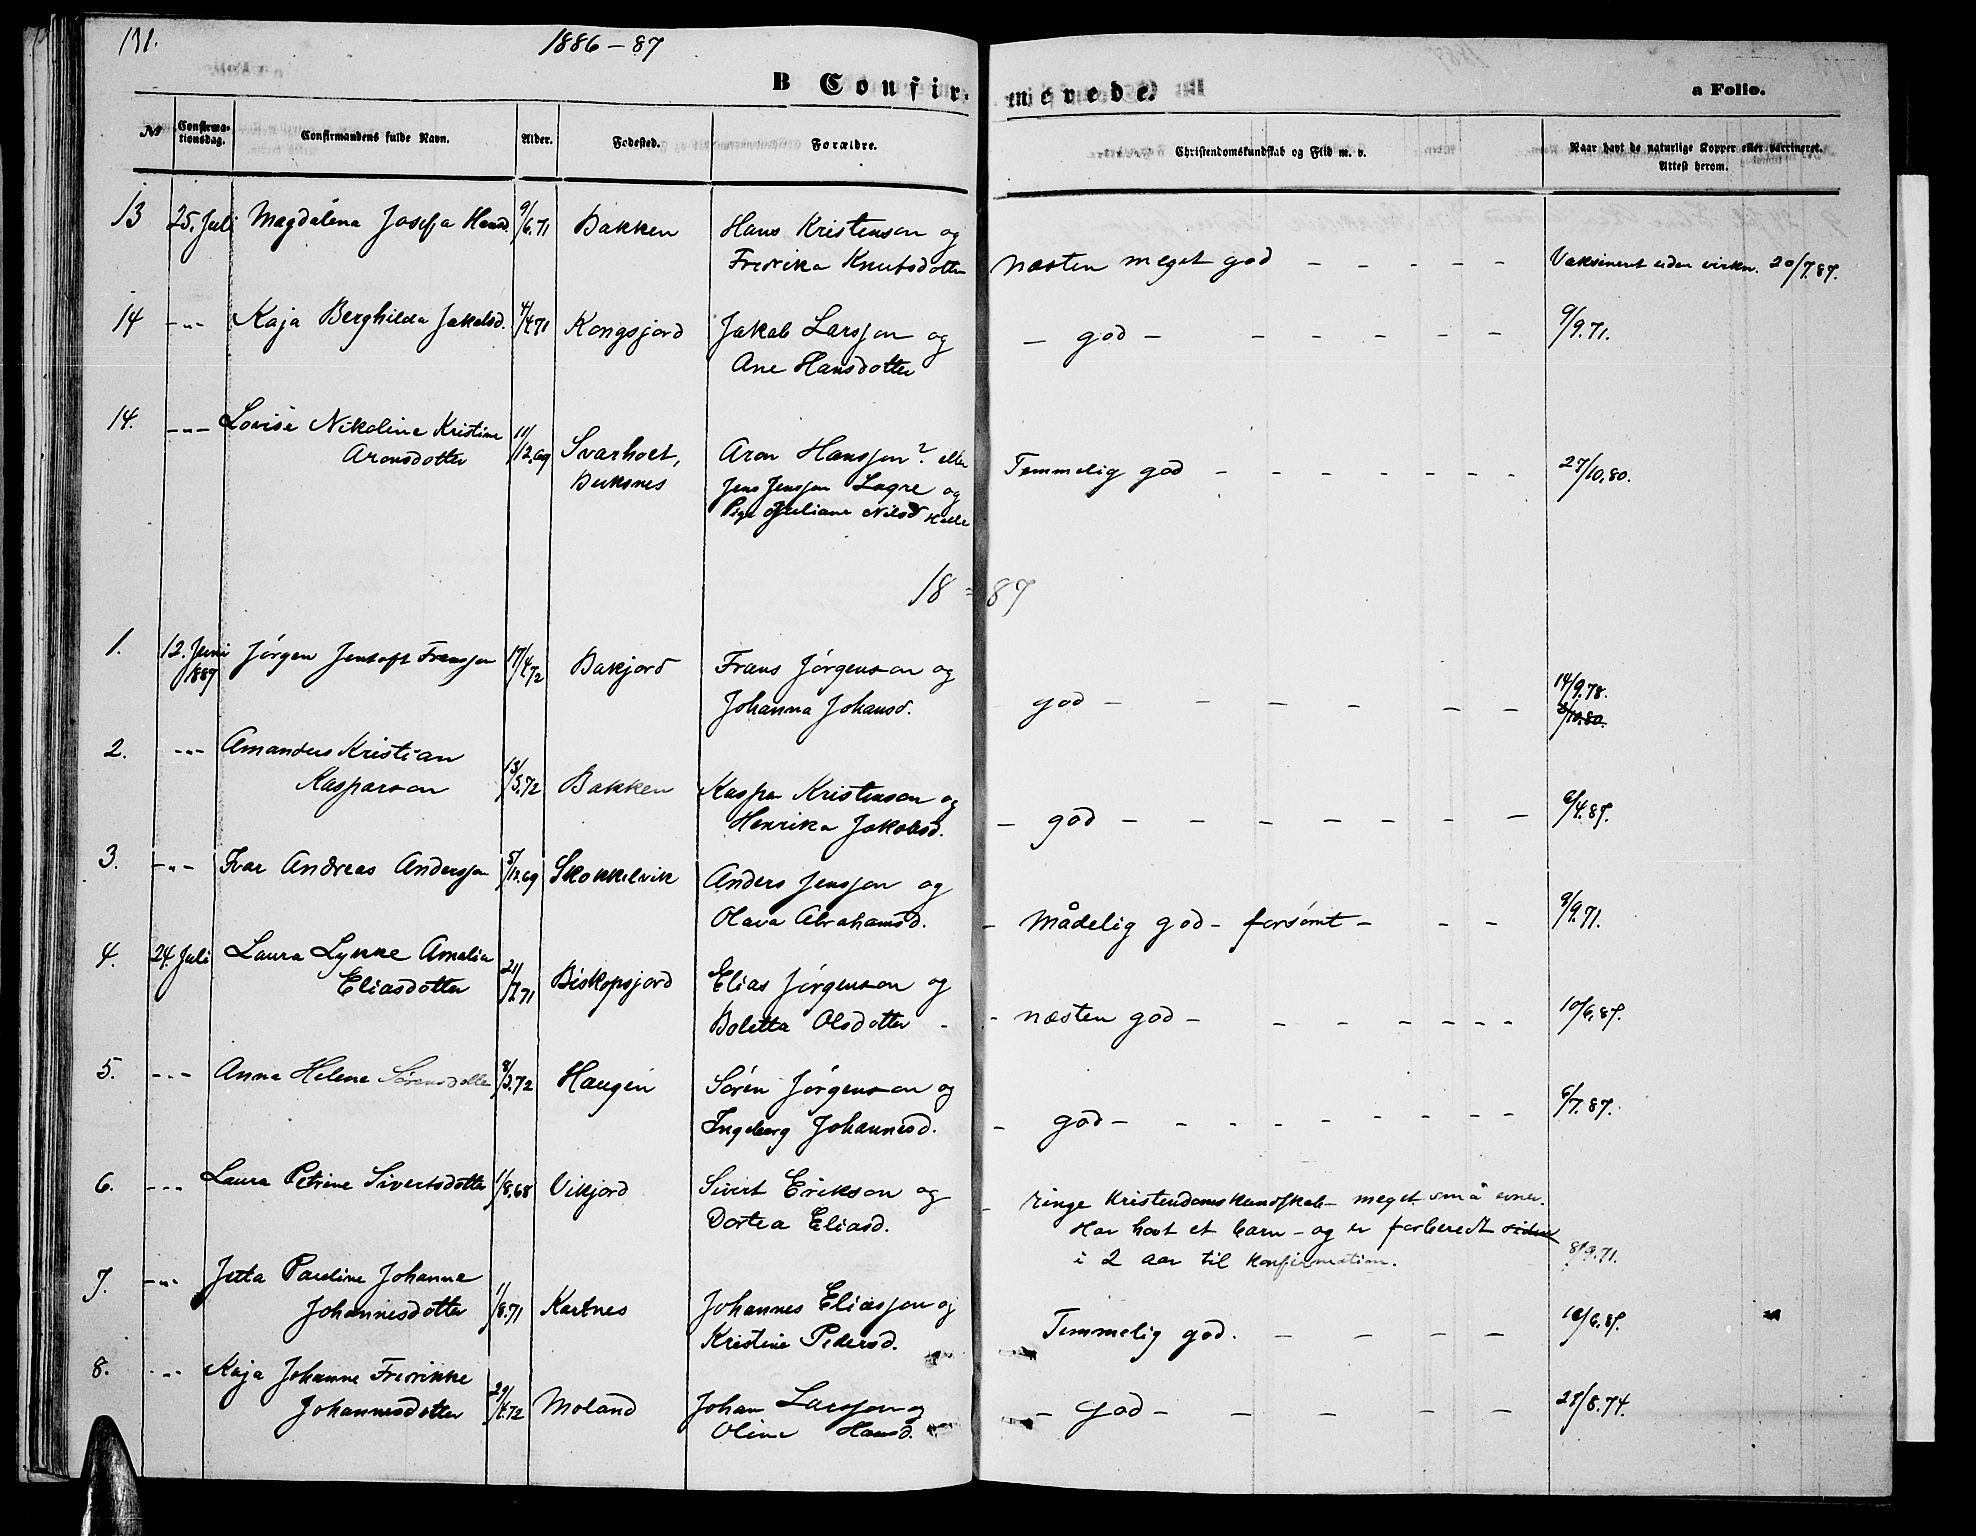 131.
1886-87
B Confirmerede.
a Folio.
No
Confirmationsdag.
Confirmandens fulde Navn.
Alder.
Fodested.
Forældre.
Christendomskundskab og Flid m. v.
Naar havt de naturlige Kopper eller vaccineret. Attest herom.
13 25. Juli Magdalena Josefa Hansd. 9/6.71 Bakken Hans Kristenson og
Fredrika Knutsdotter næsten meget god - - - - - Vaksinert uden virkn. 20/7.87.
14 -"- Kaja Berghilda Jakobsd. 4/4.71 Kongsjord Jakob Larsson og
Ane Hansdotter - god - - - - - - 9/9.71.
14. -"- Lovise Nikoline Kristine
Aronsdotter 11/12.69 Svarholt, Aron Hansson? eller Temmelig god - - - - - - 27/10.80.
Buksnes Jens Jensson Lagre og
Pige Juliane Nilsd
18 = 87
1. 12. Juni 1887 Jørgen Jentoft Fransson 17/4.72 Bakjord Frans Jørgenson og
Johanna Johansd. god - - - - - 14/9.78.
2. -"- Amandus Kristian
Kasparson 13/3.72 Bakken Kaspar Kristenson og
Henrika Jakobsd. - god - - - - - - - 6/4.87.
3. -"- Ivar Andreas Andersson 5/12.69 Skokkelvik Anders Jensson og
Olava Abrahamsd. - Mådelig god - forsømt - - - 9/9.71.
4. 24. Juli Laura Lykke Amalia
Eliasdotter 21/7.71 Biskopsjord Elias Jørgenson og
Boletta Olsdotter - - næsten god - - - - - - - 10/6.87.
5. -"- Anna Helene Sørensdotter 8/3.72 Haugen Søren Jørgenson og
Ingeborg Johannesd. - god - - - - - - - - 6/7.87.
6. -"- Laura Petrine Sivertsdotter 1/8.68 Vikjord Sivert Erikson og
Dortea Eliasd. - ringe Kristendomskundskab - meget små evner.
Har havt et barn - og er forberedt siden
i 2 aar til konfirmation. 8/9.71.
7. -"- Juta Pauline Johanna
Johannesdotter 1/8.71 Kartnes Johannes Eliasson og
Kristine Pedersd. Temmelig god. - - - - 10/6.87.
8. -"- Kaja Johanne Fredrikke
Johannesdotter 29/4.72 Moland Johan Larsson og
Oline Hansd. - God - - - - - 28/8.74.